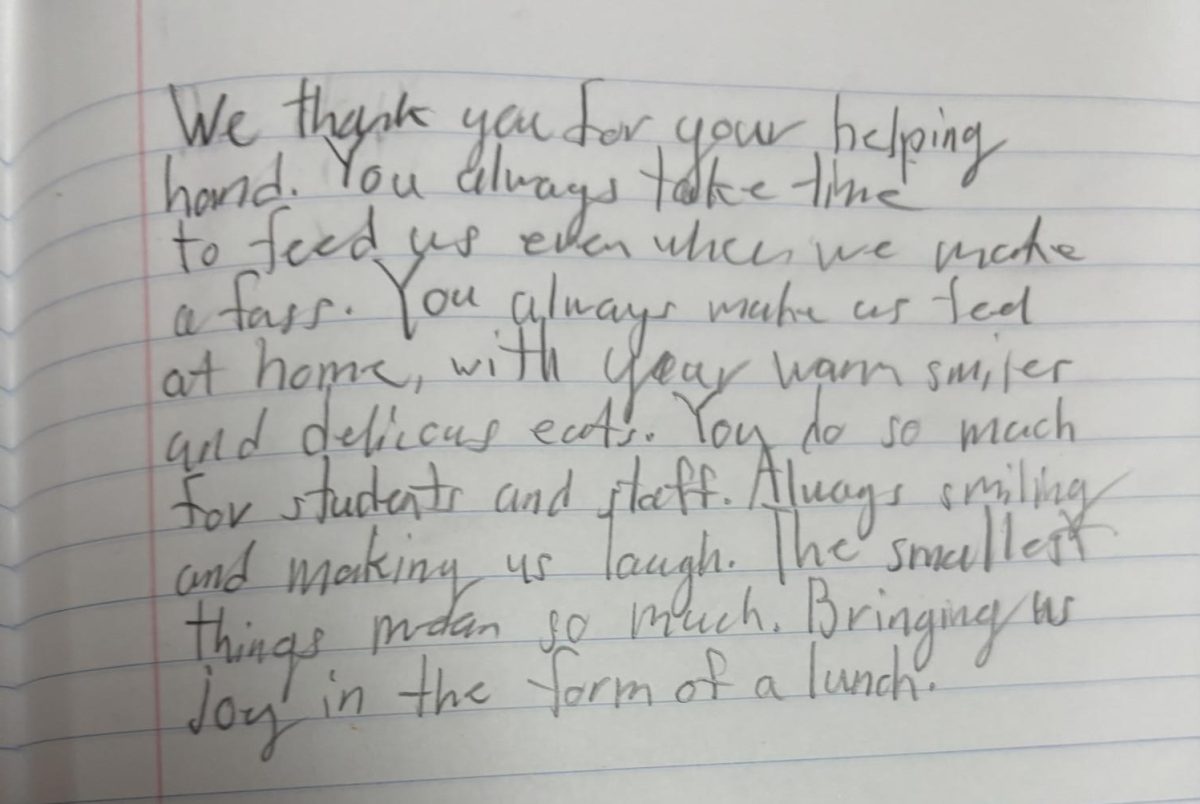 We thank you for your helping
hand. You always take time
to feed us even when we make
a fass. You always make us feel
at home, with your warm smiles
and delicous eats. You do so much
for students and staff. Always smiling
and making us laugh. The smallest
things mean so much. Bringing us
joy in the form of a lunch.